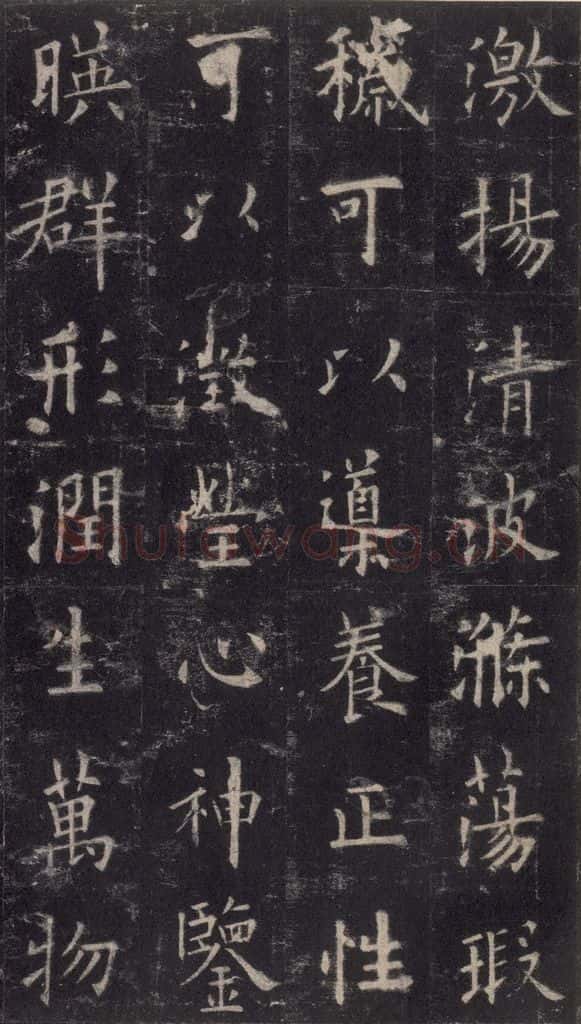 激揚清波滌蕩瑕
穢可以導養正性
可以澂瑩心神鑒
暎群形潤生萬物
Shufawang.cn